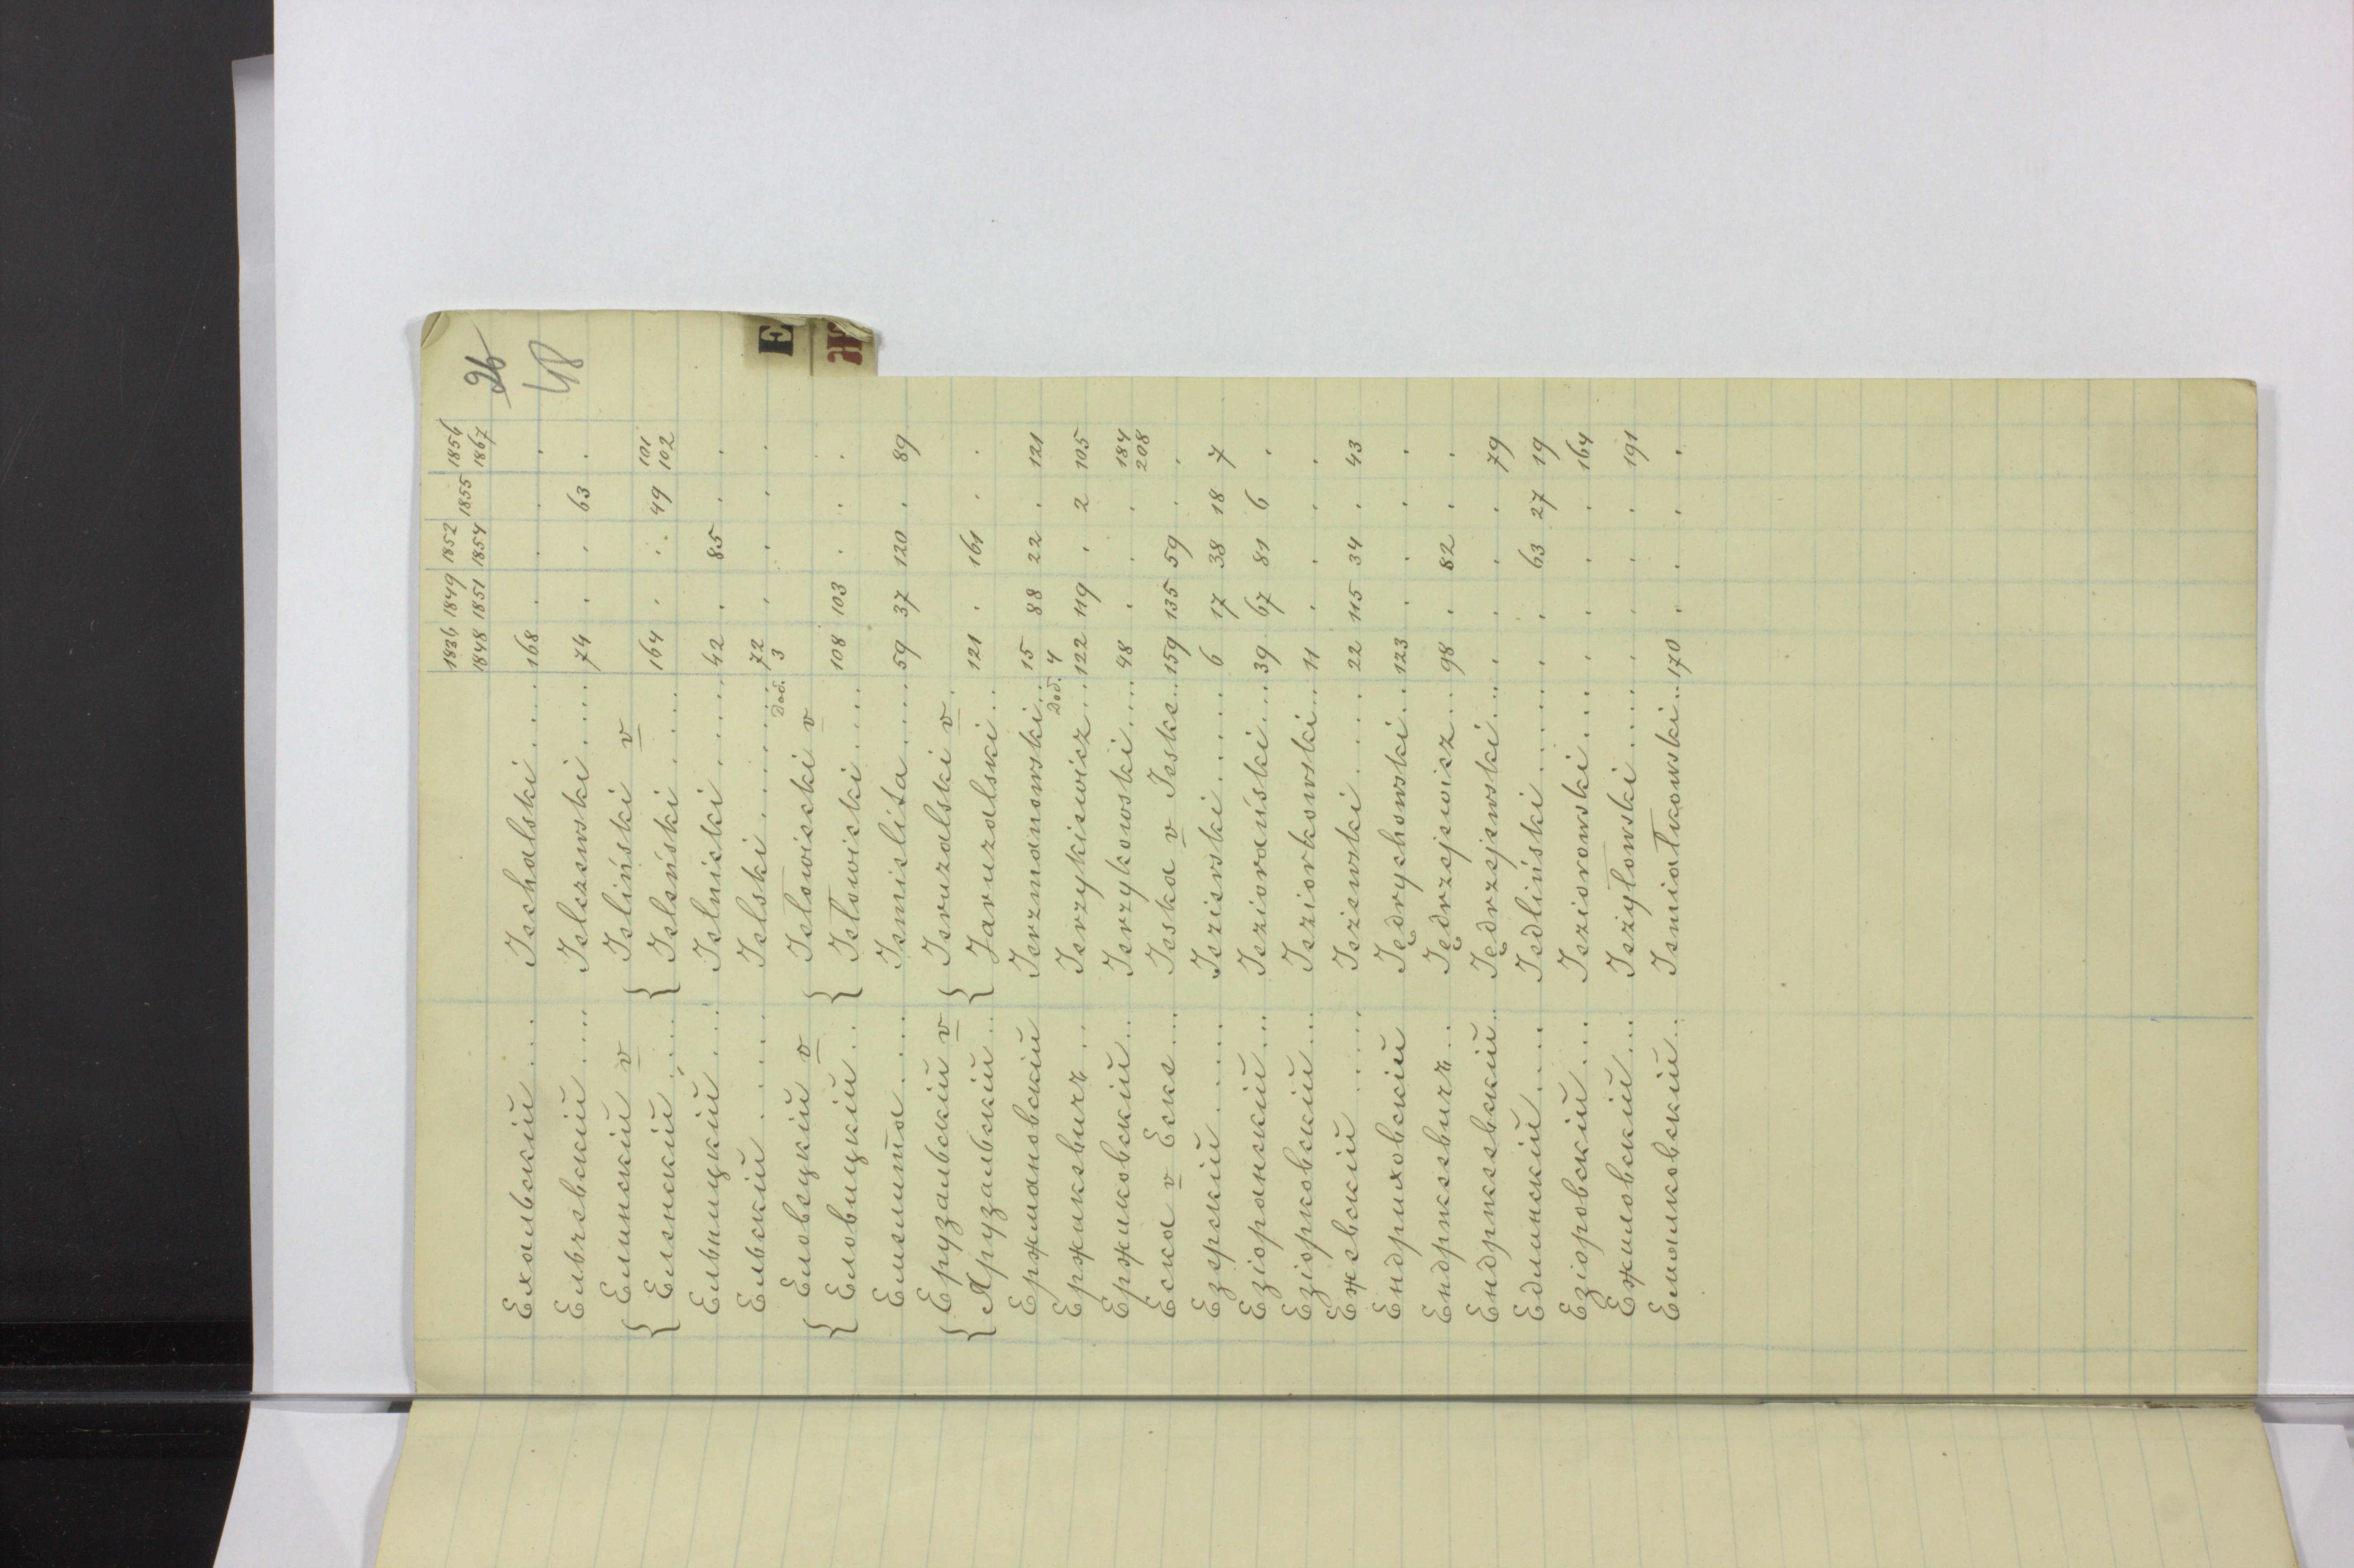 26
48
1836 1849 1852 1855 1856
1848 1851 1854 1867
Ехальскій .... Iechalski .... 168 . . . .
Ельчевскій .... Ielczewski .... 74 . . 63 .
Елинскій v Ieliński v
Еленскій .... Ieleński .... 164 . . 49 101 102
Ельницкій .... Ielnicki .... 42 . 85 . .
Ельскій .... Ielski .... 72 . . . .
Dod. 3
Еловецкій v Iełowiecki v
Еловицкій .. Iełowicki .... 108 103 . . .
Емелита .... Iemielita .... 59 37 120 . 89
Ерузальскій v Ieruzalski v
Ярузальскій .. Jaruzalski ... 121 . 161 . .
Ержмановскій Ierzmanowski ... 15 88 22 . 121
Dod. 4
Ержикевичъ ... Ierzykiewicz ... 122 119 . 2 105
Ержиковскій .. Ierzykowski .... 48 . . . 184 208
Еска v Еске ... Ieska v Ieske ... 159 135 59 . .
Езерскій .... Iezierski .... 6 17 38 18 7
Езіоранскій ... Ieziorański .... 39 67 81 6 .
Езіорковскій ... Ieziorkowski ... 11 . . . .
Ежевскій .... Ieżewski .... 22 115 34 . 43
Ендриховскій Iędrychowski .. 123 . . . .
Ендржеевичъ .. Iędrzejewicz ... 98 . 82 . .
Ендржеевскій .. Iędrzejewski ... . . . . 79
Едлинскій .... Iedliński .... . . 63 27 19
Езіоровскій ... Ieziorowski .... . . . . 164
Ежиловскій ... Ieżyłowski .... . . . . 191
Еміалковскій .. Iemiałkowski .. 170 . . . .
Е
Ж